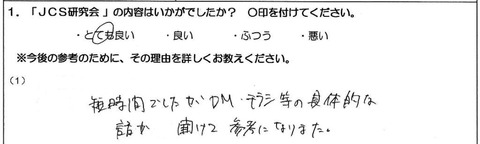 1. 「JCS研究会」の内容はいかがでしたか? ○印を付けてください。
・とても良い ・良い ・ふつう ・悪い
※今後の参考のために、その理由を詳しくお教えください。
(1)
短時間でしたがDM・チラシ等の具体的な
話が 聞けて 参考になりました。